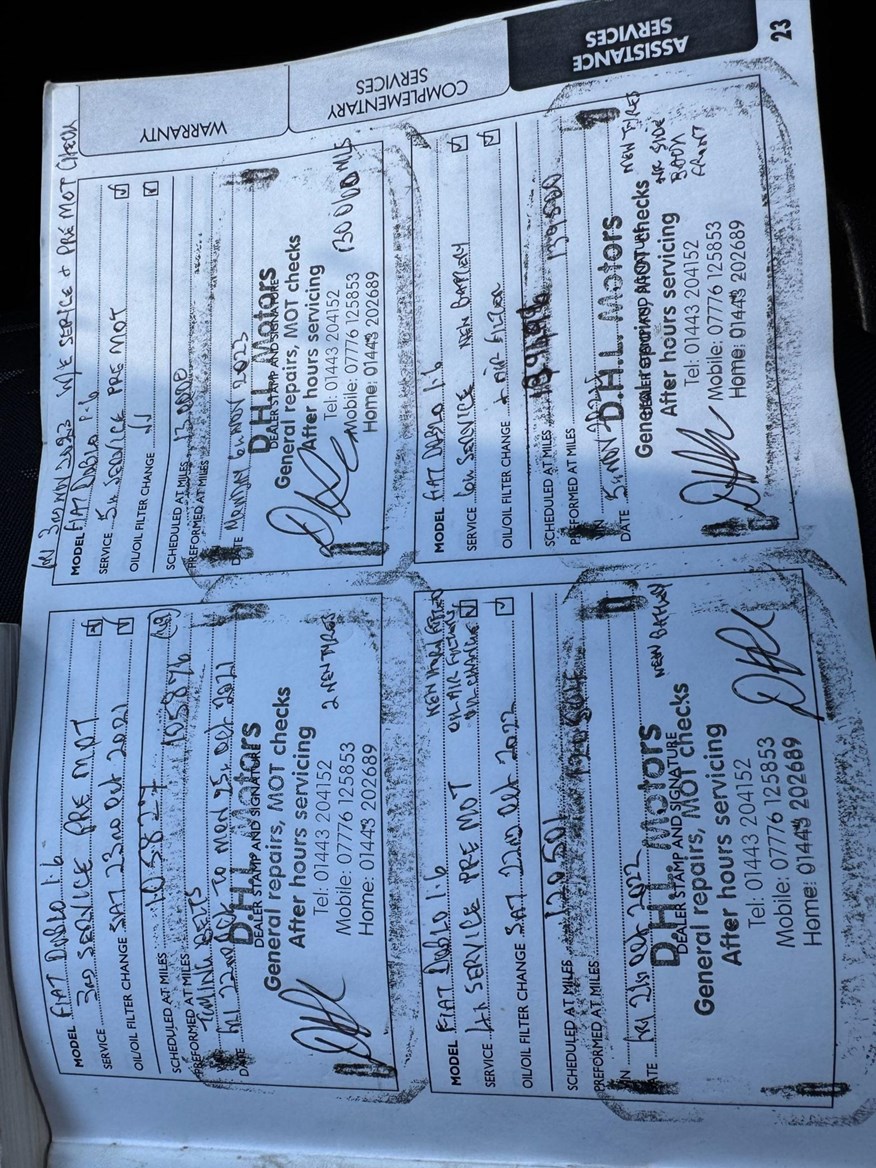 MODEL FIAT DOBLO 1.6
SERVICE 3RD SERVICE PRE MOT
OIL/OIL FILTER CHANGE SAT 23RD OCT 2021
SCHEDULED AT MILES 105827
PREFORMED AT MILES 105876
TIMING BELTS
DATE FRI 22ND OCT TO MON 25 OCT 2021
D.H.L. Motors
DEALER STAMP AND SIGNATURE
General repairs, MOT checks
After hours servicing
2 NEW TYRES
Tel: 01443 204152
Mobile: 07776 125853
Home: 01443 202689
MODEL FIAT DOBLO 1.6
SERVICE 4th SERVICE PRE MOT
OIL AIR FILTERS
OIL CHANGE
OIL/OIL FILTER CHANGE SAT 22ND OCT 2022
SCHEDULED AT MILES 120501
PREFORMED AT MILES
VIN
DATE FRI 21st OCT 2022
NEW BATTERY
D.H.L. Motors
DEALER STAMP AND SIGNATURE
General repairs, MOT checks
After hours servicing
Tel: 01443 204152
Mobile: 07776 125853
Home: 01443 202689
FRI 3RD NOV 2023 W/E SERVICE + PRE MOT CHECK
MODEL FIAT DOBLO 1.6
SERVICE 5th SERVICE PRE MOT
OIL/OIL FILTER CHANGE
SCHEDULED AT MILES 130000
PREFORMED AT MILES
DATE MONDAY 6th NOV 2023
D.H.L. Motors
DEALER STAMP AND SIGNATURE
General repairs, MOT checks
After hours servicing
Tel: 01443 204152
Mobile: 07776 125853
Home: 01443 202689
MODEL FIAT DOBLO 1.6
SERVICE 6th SERVICE NEW BATTERY
OIL/OIL FILTER CHANGE + AIR FILTER
SCHEDULED AT MILES
PREFORMED AT MILES 139500
DATE 5 NOV
NEW TYRES
N/R SIDE
BACK
FRONT
D.H.L. Motors
DEALER STAMP AND SIGNATURE
General repairs, MOT checks
After hours servicing
Tel: 01443 204152
Mobile: 07776 125853
Home: 01443 202689
WARRANTY
COMPLEMENTARY
SERVICES
ASSISTANCE
SERVICES
23